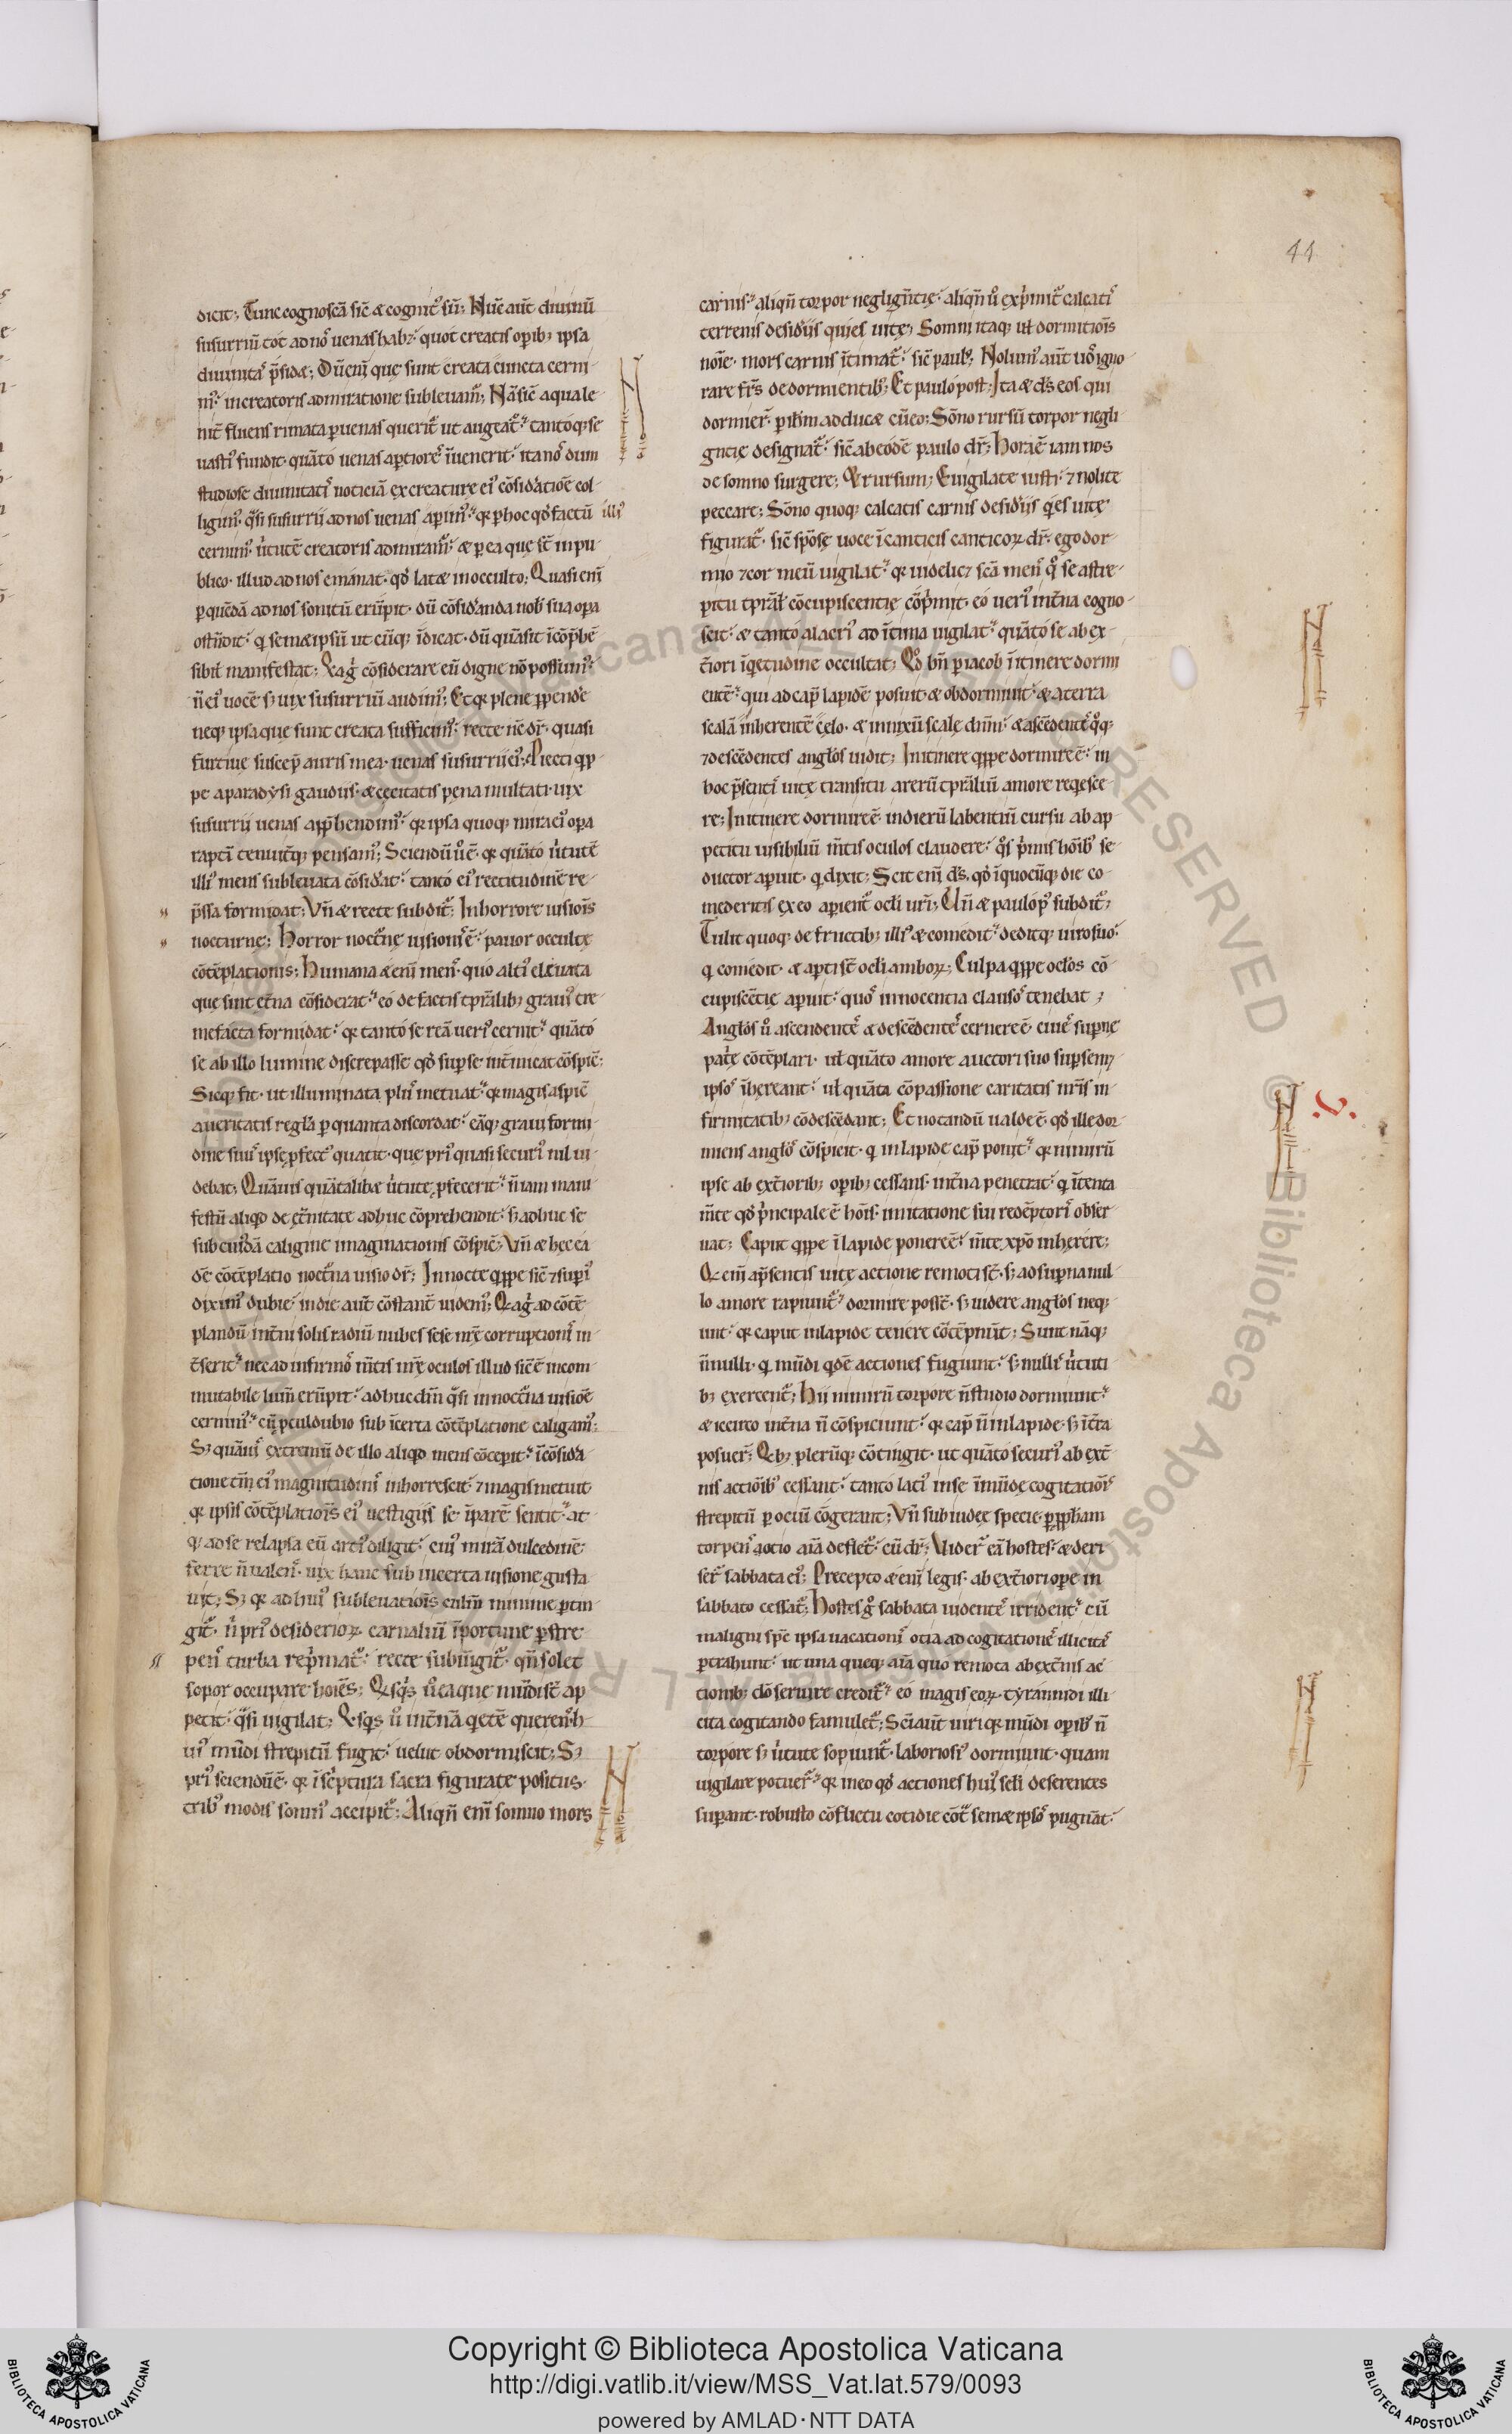 44
dicit; Tunc cognoscā sic̄ & cognit᷒ sū; Nūc aut̄ diuinū
susurriū tot ad nos uenas habꝫ quot creatis opib; ipsa
diuinitas p̄sid&; Dū eni que sunt creata cuncta cerni
m᷒ in creatoris admiratione subleuam᷒; Nā sic̄ aqua le
nit̄ fluens rimata p uenas querit᷒ ut augeat᷒ tantoq; se
uasti᷒ fundit quāto uenas aptiores īuenerit ita nos dum
studiose diuinitatis noticiā ex creature ei᷒ cōsidatiōe col
ligim᷒ q̄si susurrii ad nos uenas apim᷒ qꝛ p hoc qd̄ factū illi᷒
cernim᷒ uirtutē creatoris admiram᷒ & p ea que st̄ in pu
blico illud ad nos emanat qd̄ lat& in occulto; Quasi eni
p quēdā ad nos sonitū erūpit dū cōsidanda nob sua opa
ostēdit q̄ sem&ipsū ut cūq; īdicat dū quā sit īcōp̄hē
sibil manifestat; Qꝛ ḡ cōsiderare eū digne nō possum᷒
n̄ ei᷒ uocē sꝫ uix susurriū audim᷒; Et qꝛ plene ꝑpendē
neq; ipsa que sunt creata sufficim᷒ recte nē dr̄ quasi
furtiue suscep̄ auris mea uenas susurrii ei᷒; Piecti qͥp
pe a paradysi gaudiis & cecitatis pena multati uix
susurrii uenas app̄hendim᷒ qꝛ ipsa quoq; mira ei᷒ opa
raptī tenuit̄q; pensam᷒; Sciendū ū ē qꝛ quāto uirtutē
illi᷒ mens subleuata cōsidat tanto ei᷒ rectitudinē re
p̄ssa formidat; Vn̄ & recte subdit᷒; In horrore uisiōis
nocturne; Horror noct̄ne uisionis ē pauor occulte
cōtēplationis; Humana &eni mens quo alti᷒ eleuata
que sunt et̄na cōsiderat eo de factis tp̄alib; graui᷒ tre
mefacta formidat qꝛ tanto se reā ueri᷒ cernit quāto
se ab illo lumine discrepasse qd̄ sup se int̄ micat cōspic̄;
Sicq; fit ut illuminata pl᷒ metuat qꝛ magis aspic̄
a ueritatis regla p quanta discordat eāq; graui formi
dine suus ipse pfect᷒ quatit que pri᷒ quasi securi᷒ nil ui
debat; Quāuis quātalib& uirtute pfecerit n̄ iam mani
festū aliqd de et̄nitate adhuc cōprehendit sꝫ adhuc se
sub cuidā caligine imaginationis cōspic̄; Vn̄ & hec ea
dē cōtēplatio noct̄na uisio dr̄; In nocte qͥppe sic̄ ⁊ superi᷒
dixim᷒ dubie in die aut̄ cōstant̄ uidem᷒; Qꝛ ḡ ad cōtē
plandū int̄ni solis radiū nubes sese nr̄e corruptionis in
t̄serit nec ad infirmos mtis nr̄e oculos illud sic̄ ē incom
mutabile lum̄ erūpit adhuc dm̄ q̄si in noct̄na uisiōe
cernim᷒ cū pculdubio sub īcerta cōtēplatione caligam᷒;
Sꝫ quāuis extremū de illo aliqd mens cōcepit īcōsida
tione tm̄ ei᷒ magnitudinis inhorrescit ⁊ magis metuit
qꝛ ipsis cōtēplatiōis ei᷒ uestigiis se īparē sentit at
q; ad se relapsa eū arti᷒ diligit cui᷒ mirā dulcedinē
ferre n̄ ualens uix hanc sub incerta uisione gusta
uit; Sꝫ qꝛ ad hui᷒ subleuatiōis culm̄ minime ptin
git᷒ n̄ pri᷒ desiderioꝝ carnaliū īportune pstre
pens turba rep̄mat᷒ recte subiūgit᷒ qn̄ solet
sopor occupare hoīes; Qͥsqͥs ū ea que mūdi st̄ ap
petit q̄si uigilat; Qͥsqͥs ū int̄nā qͥetē querens h
ui᷒ mūdi strepitū fugit uelut obdormiscit; Sꝫ
pri᷒ sciendū ē qꝛ ī sc̄ptura sacra figurate positus
trib᷒ modis somn᷒ accipit᷒; Aliqn̄ eni somno mors
carnis aliqn̄ torpor neglign̄tie aliqn̄ ū exp̄mit᷒ calcatis
terrenis desidiis quies uite; Somni itaq; uł dormitiōis
noīe mors carnis ītimat᷒ sic̄ paul᷒; Nolum᷒ aut̄ uos igno
rare fr̄s de dormientib᷒; Et paulo post; Ita & ds̄ eos qui
dormier̄ p ihm adduc& cū eo; Sōno rursū torpor negli
gntie designat᷒ sic̄ ab eodē paulo dr̄; Hora ē iam nos
de somno surgere; Et rursum; Euigilate iusti ⁊ nolite
peccare; Sōno quoq; calcatis carnis desidiis qͥes uite
figurat᷒ sic̄ spōse uoce ī canticis canticoꝝ dr̄ ego dor
mio ⁊ cor meū uigilat qꝛ uidelicꝫ scā mens q̄ se a stre
pitu tp̄al cōcupiscentie cōp̄mit eo ueri᷒ int̄na cogno
scit & tanto alacri᷒ ad ītima uigilat quāto se ab ex
t̄iori īqͥetudine occultat; Qd̄ bn̄ p iacob ī itinere dormi
entē qui ad cap̄ lapidē posuit & obdormiuit & a terra
scalā inherentē celo & innixū scale dnm̄ & ascēdentes qͦq;
⁊ descēdentes anglos uidit; In itinere qͥppe dormire ē in
hoc p̄sentis uite transitu a rerū tp̄aliū amore reqͥesce
re; In itinere dormire ē in dierū labentiū cursu ab ap
petitu uisibiliū mtis oculos claudere q̄s p̄mis hōib᷒ se
ductor apuit qͥ dixit; Scit eni ds̄ qd̄ ī quocūq; die co
mederitis ex eo apient᷒ ocli uri; Un̄ & paulo p᷒ subdit᷒;
Tulit quoq; de fructib; illi᷒ & comedit deditq; uiro suo
qͥ comedit & apti st̄ ocli amboꝝ; Culpa qͥppe oclos cō
cupiscētie apuit quos innocentia clausos tenebat;
Anglos ū ascendentes & descēdentes cernere ē ciues superne
pat̄e cōtēplari uł quāto amore auctori suo sup semꝫ
ipsos īhereant uł quāta cōpassione caritatis nr̄is in
firmitatib; cōdescēdant; Et notandū ualde ē qd̄ ille dor
miens anglos cōspicit qͥ in lapide cap̄ ponit qꝛ nimirū
ipse ab ext̄iorib; opib; cessans int̄na penetrat qͥ ītenta
mte qd̄ p̄ncipale ē hōis imitatione sui redēptoris obser
uat; Caput qͥppe ī lapide ponere ē mte xpō inherere;
Qͥ eni a p̄sentis uite actione remoti st̄ sꝫ ad superna nul
lo amore rapiunt᷒ dormire poss̄t sꝫ uidere anglos neq;
unt qꝛ caput in lapide tenere cōtēpnūt; Sunt nāq;
n̄nulli qͥ mūdi qͥdē actiones fugiunt sꝫ nullis uirtuti
b; exercent᷒; Hii nimirū torpore n̄ studio dormiunt
& iccirco int̄na n̄ cōspiciunt qꝛ cap̄ n̄ in lapide sꝫ ī t̄ra
posuer̄; Qͥb; plerūq; cōtingit ut quāto securi᷒ ab ext̄
nis actiōib᷒ cessant tanto lati᷒ in se īmūde cogitatiōis
strepitū p ociū cōgerant; Vn̄ sub iudee specie p ꝓph̄am
torpens ocio aīa deflet᷒ cū dr̄; Uider̄ eā hostes & deri
ser̄ sabbata ei᷒; Precepto &eni legis ab ext̄iori ope in
sabbato cessat᷒; Hostes ḡ sabbata uidentes irrident cū
maligni sp̄c ipsa uacationis otia ad cogitationes illicitas
ptrahunt ut una queq; aīa quo remota ab ext̄nis ac
tionib; do seruire credit᷒ eo magis eoꝝ tyrannidi illi
cita cogitando famulet᷒; Sci aut̄ uiri qꝛ mūdi opib᷒ n̄
torpore sꝫ uirtute sopiunt᷒ laboriosi᷒ dormiunt quam
uigilare potuer̄ qꝛ in eo qd̄ actiones hui᷒ scli deserentes
superant robusto cōflictu cotidie cōt̄ sem&ipsos pugnāt
Copyright © Biblioteca Apostolica Vaticana
http://digi.vatlib.it/view/MSS_Vat.lat.579/0093
powered by AMLAD·NTT DATA